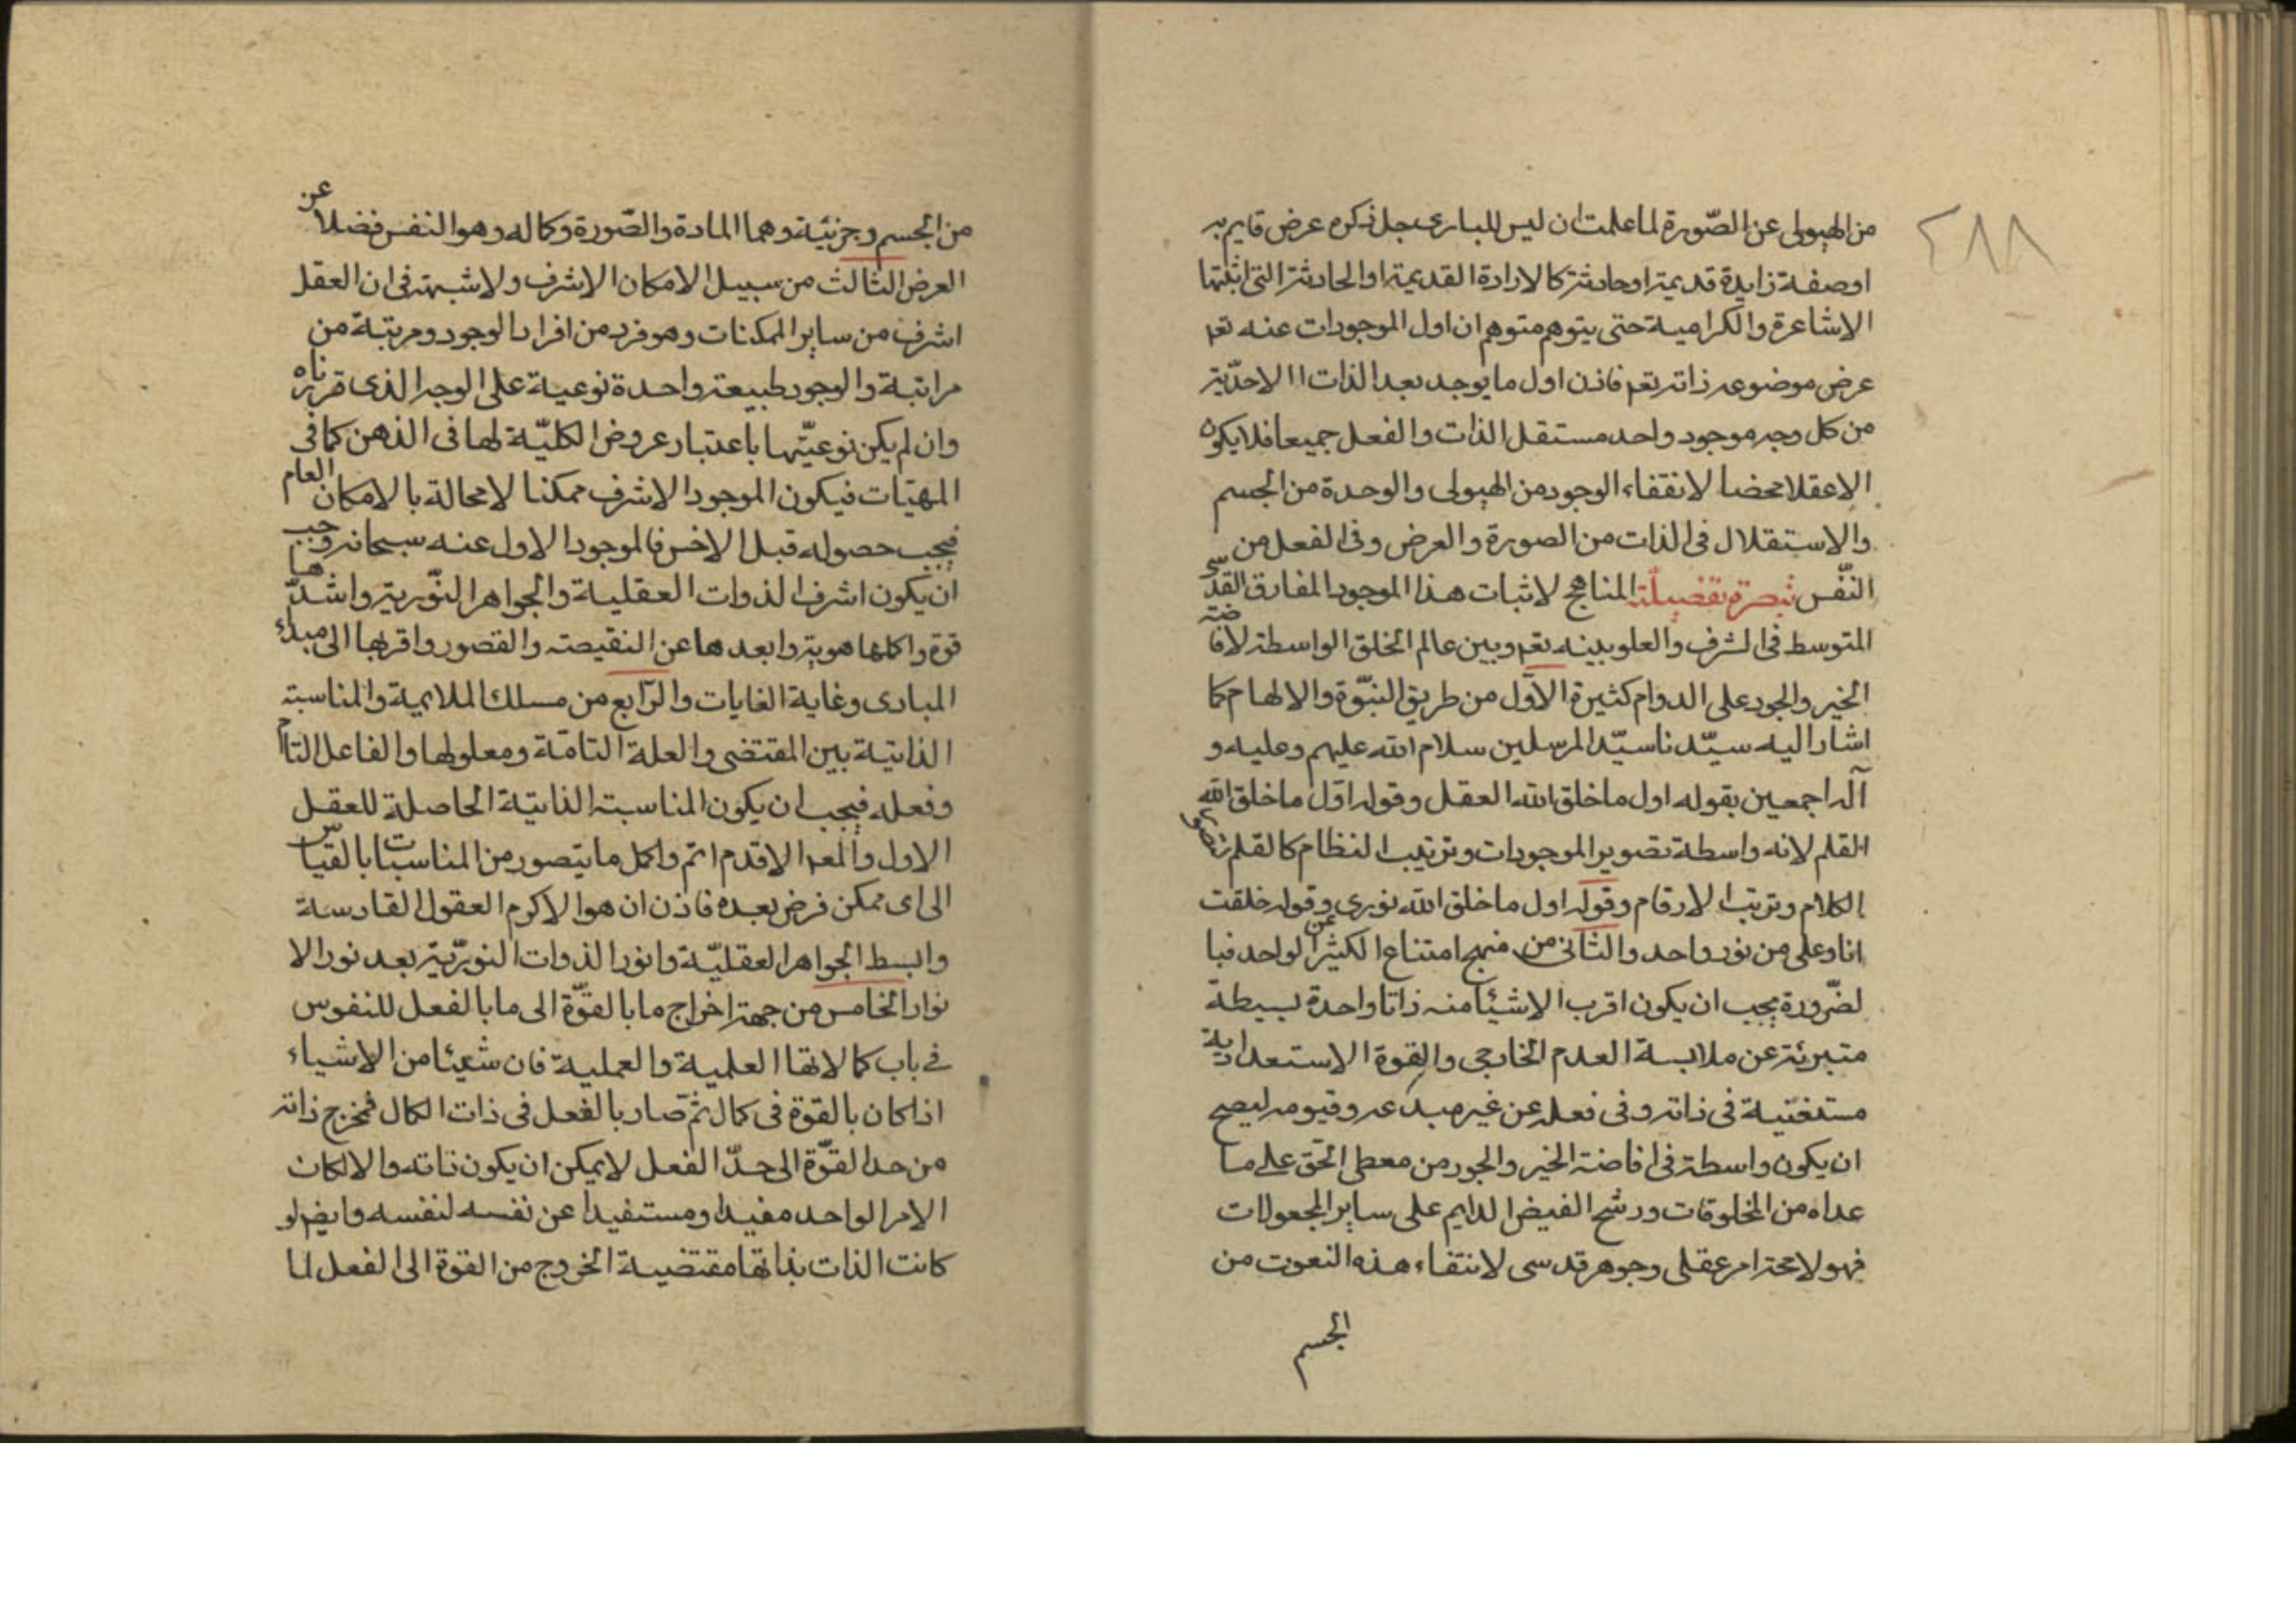 ٤٨٨
من الهيولى عن الصّورة لما علمت ان ليس للبارى جل ذكره عرض قايم به
او صفة زايدة قديمة او حادثة كالارادة القديمة او الحادثة التى اثبتها
الاشاعرة والكرامية حتى يتوهم متوهم ان اول الموجودات عنه تعم
عرض موضوعه ذاته تعم فاذن اول ما يوجد بعد الذات الاحدّية
من كل وجه موجود واحد مستقل الذات والفعل جميعا فلا يكون
الا عقلا محضا لانتفاء الوجود من الهيولى والوحدة من الجسم
والاستقلال فى الذات من الصورة والعرض وفى الفعل من
النفّس تبصرة تفصيلّية المناهج لاثبات هذا الموجود المفارق القدسى
المتوسط فى الشرف والعلو بينه تعم وبين عالم الخلق الواسطة لافاضة
الخير والجود على الدوام كثيرة الاوّل من طريق النبّوة والالهام كما
اشار اليه سيّدنا سيّد المرسلين سلام الله عليهم وعليه و
آله اجمعين بقوله اول ما خلق الله العقل وقوله اوّل ما خلق الله
القلم لانه واسطة تصوير الموجودات وترتيب النظام كالقلم تصوير
الكلام وترتيب الارقام وقوله اول ما خلق الله نورى وقوله خلقت
انا وعلى من نور واحد والثانى من منهج امتناع الكثير عن الواحد فبا
لضّرورة يجب ان يكون اقرب الاشيئا منه ذاتا واحدة بسيطة
متبرئة عن ملابسة العدم الخارجى والقوة الاستعدادية
مستغنية فى ذاته وفى فعله عن غير مبدعه وقيومه ليصح
ان يكون واسطة فى افاضة الخير والجود من معطى الحق على ما
عداه من المخلوقات ورشح الفيض الدايم على ساير المجعولات
فهو لا محة امر عقلى وجوهر قدسى لانتفاء هذه النعوت من
الجسم
من الجسم وجزئية وهما المادة والصّورة وكماله وهو النفس فضلا عن
العرض الثالث من سبيل الامكان الاشرف ولا شبهة فى ان العقل
اشرف من ساير الممكنات وهو فرد من افراد الوجود ومرتبة من
مراتبة والوجود طبيعة واحدة نوعية على الوجه الذى قررناه
وان لم يكن نوعيّتها باعتبار عروض الكليّة لها فى الذهن كما فى
المهيّات فيكون الموجود الاشرف ممكنا لا محالة بالامكان العام
فيجب حصوله قبل الاخس فالموجود الاول عنه سبحانه وجب
ان يكون اشرف الذوات العقلية والجواهر النّورية واشدّها
قوة واكملها هوية وابعدها عن النقيصة والقصور واقربها الى مبدء
المبادى وغاية الغايات والرّابع من مسلك الملايمة والمناسبة
الذاتية بين المقتضى والعلة التامّة ومعلولها والفاعل التام
وفعله فيجب ان يكون المناسبة الذاتية الحاصلة للعقل
الاول والمعد الاقدم اتم واكمل ما يتصور من المناسبات بالقياس
الى اى ممكن فرض بعده فاذن ان هو الاكرم العقول القادسة
وابسط الجواهر العقليّة وانور الذوات النوريّة بعد نور الا
نوار الخامس من جهة اخراج ما بالقوّة الى ما بالفعل للنفوس
فى باب كمالاتها العلمية والعملية فان شيئا من الاشياء
اذا كان بالقوة فى كمال ثمّ صار بالفعل فى ذات الكمال فمخرج ذاته
من حد القوّة الى حدّ الفعل لا يمكن ان يكون ذاته والا لكان
الامر الواحد مفيدا ومستفيدا عن نفسه لنفسه وايضا لو
كانت الذات بذاتها مقتضية الخروج من القوة الى الفعل لما